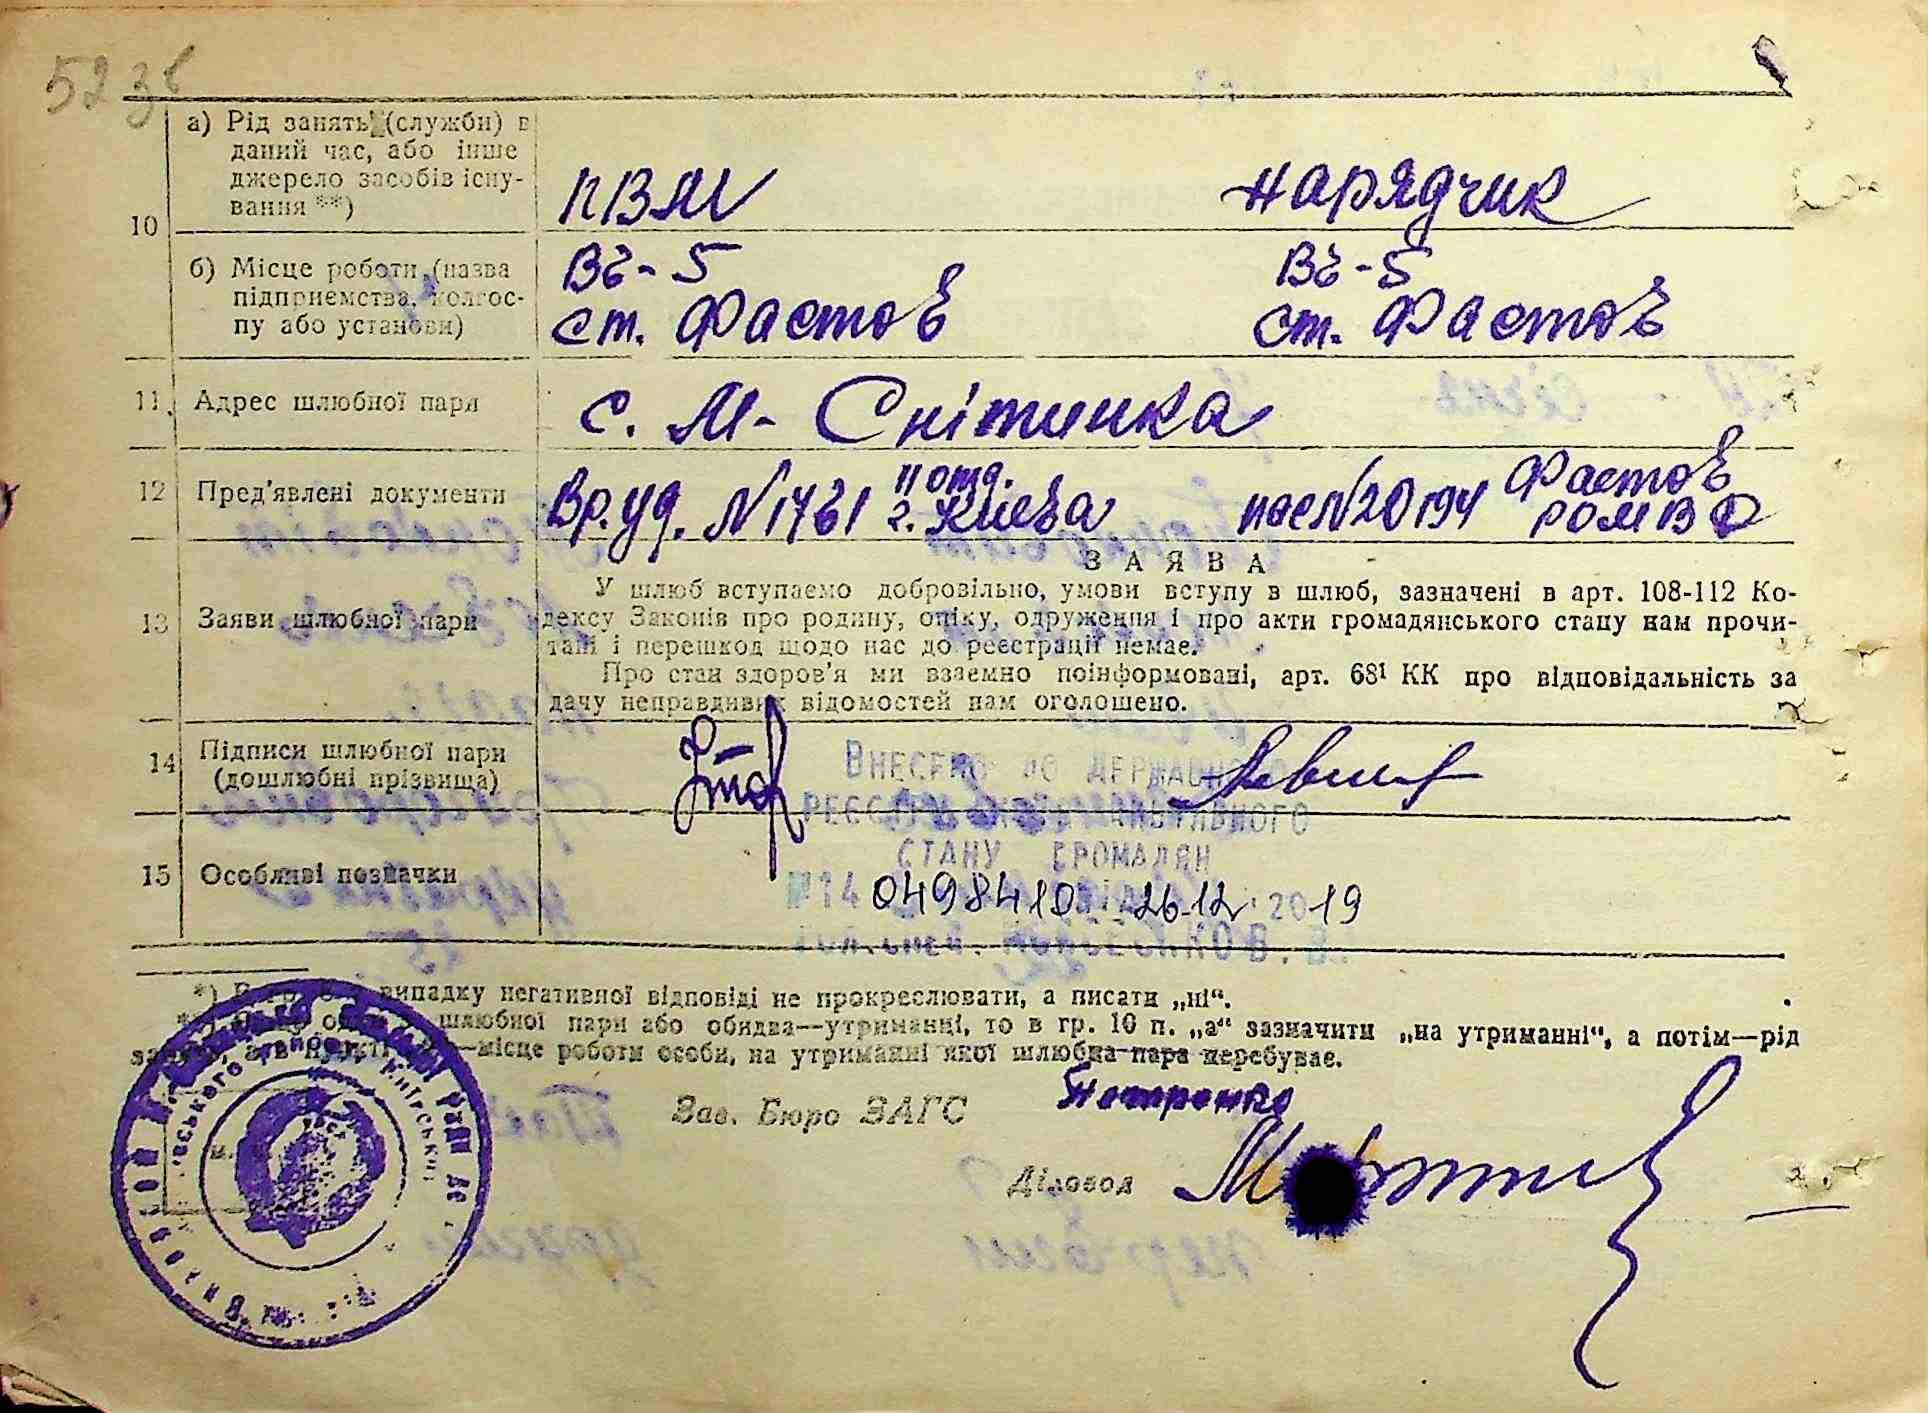 52 зв
10
а) Рід занять (служби) в
даний час, або інше
джерело засобів існу-
вання **)
ПВМ
нарядчик
б) Місце роботи (назва
підприємства, колгос-
пу або установи)
ВЧ-5
ст. Фастов
ВЧ-5
ст. Фастов
11. Адрес шлюбної пари
с. М- Снітинка
12 Пред'явлені документи
Вр. уд. N 1761 11 отд. г. Киева
пас N 20194 Фастов РОМВД
13 Заяви шлюбної пари
ЗАЯВА
У шлюб вступаємо добровільно, умови вступу в шлюб, зазначені в арт. 108-112 Ко-
дексу Законів про родину, опіку, одруження і про акти громадянського стану нам прочи-
тані і перешкод щодо нас до реєстрації немає.
Про стан здоров'я ми взаємно поінформовані, арт. 68¹ КК про відповідальність за
дачу неправдивих відомостей нам оголошено.
14 Підписи шлюбної пари
(дошлюбні прізвища)
ВНЕСЕНО ДО ДЕРЖАВНОГО
РЕЄСТРУ АКТІВ ЦИВІЛЬНОГО
СТАНУ ГРОМАДЯН
15 Особливі позначки
26.12.2019
випадку негативної відповіді не прокреслювати, а писати „ні“.
шлюбної пари або обидва—утриманці, то в гр. 10 п. „а“ зазначити „на утриманні“, а потім—рід
місце роботи особи, на утриманні якої шлюбна пара перебуває.
Зав. Бюро ЗАГС
Діловод